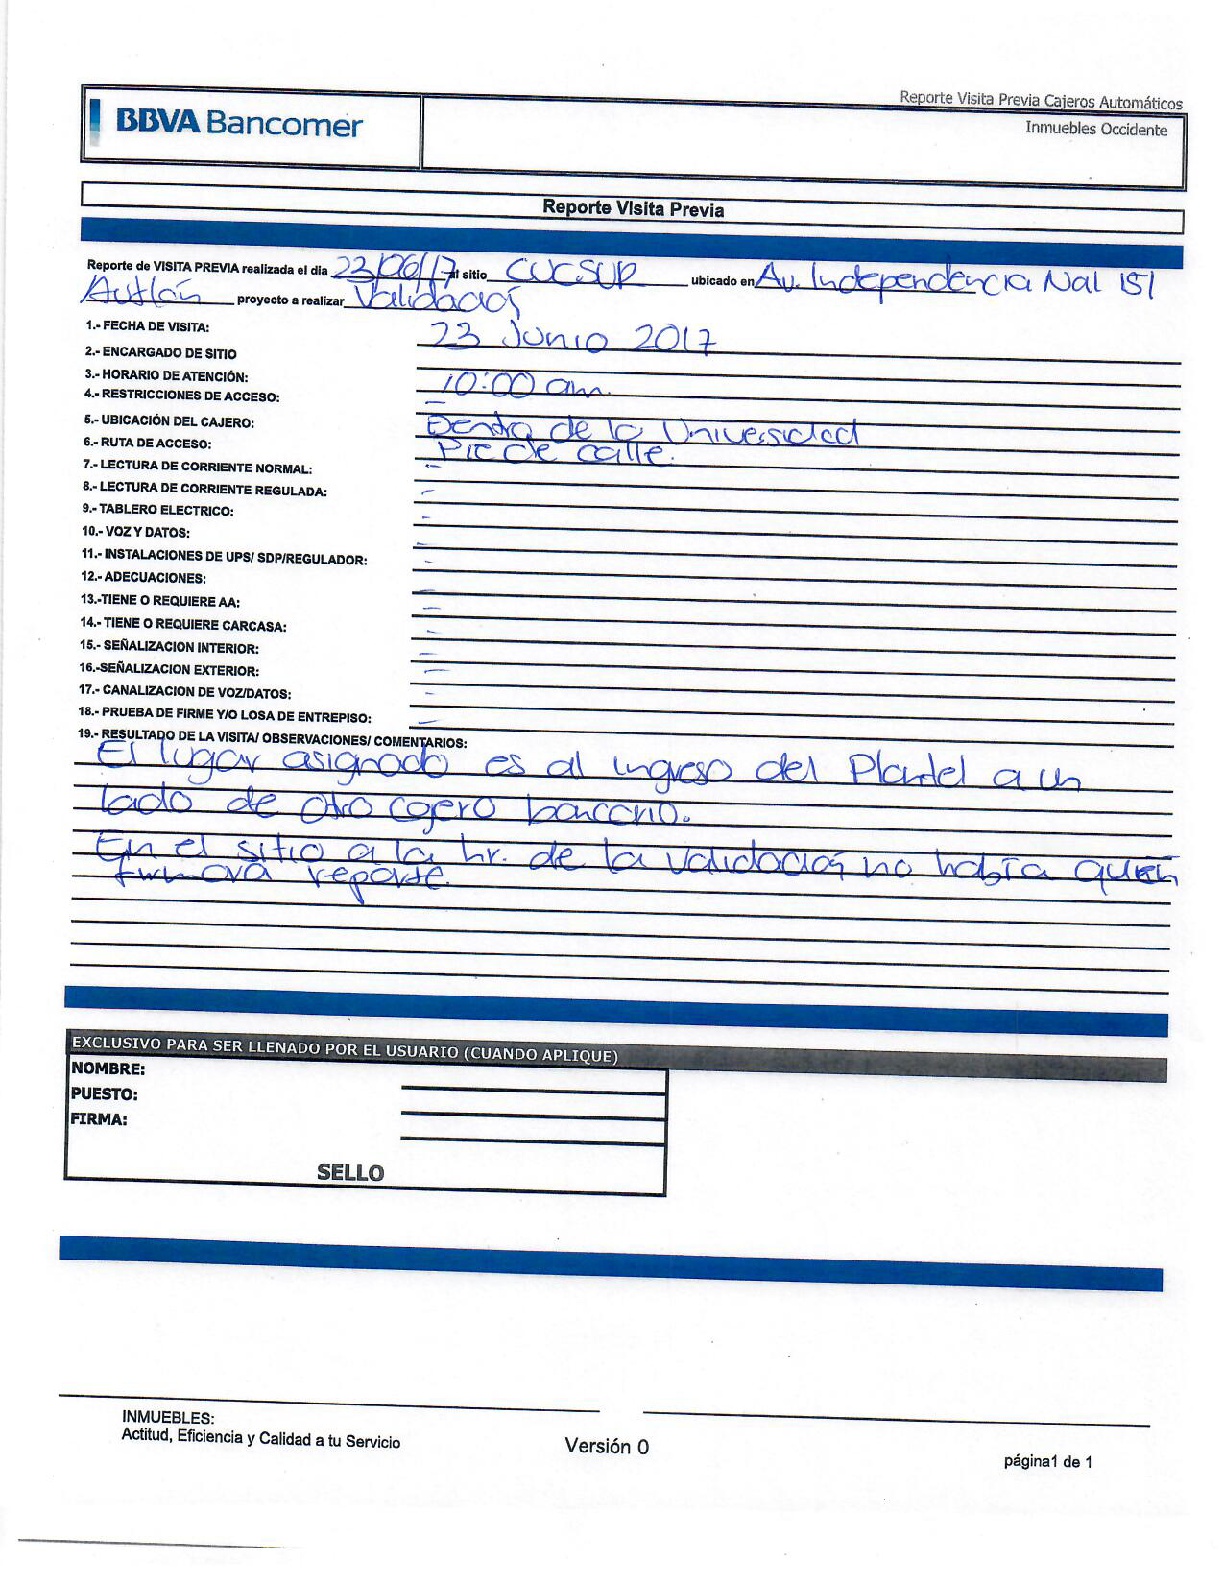 Reporte Visita Previa Cajeros Automáticos
BBVA Bancomer
Inmuebles Occidente
Reporte Visita Previa
Reporte de VISITA PREVIA realizada el dia 23/06/17 al sitio CUCSUR ubicado en Av. Independencia Nal 151
Autlán proyecto a realizar Validación
1.- FECHA DE VISITA: 23 Junio 2017
2.- ENCARGADO DE SITIO
3.- HORARIO DE ATENCIÓN: 10:00 am.
4.- RESTRICCIONES DE ACCESO: –
5.- UBICACIÓN DEL CAJERO: Dentro de la Universidad
6.- RUTA DE ACCESO: Pie de calle.
7.- LECTURA DE CORRIENTE NORMAL: –
8.- LECTURA DE CORRIENTE REGULADA: –
9.- TABLERO ELECTRICO: –
10.- VOZ Y DATOS: –
11.- INSTALACIONES DE UPS/ SDP/REGULADOR: –
12.- ADECUACIONES: –
13.-TIENE O REQUIERE AA: –
14.- TIENE O REQUIERE CARCASA: –
15.- SEÑALIZACION INTERIOR: –
16.-SEÑALIZACION EXTERIOR: –
17.- CANALIZACION DE VOZ/DATOS: –
18.- PRUEBA DE FIRME Y/O LOSA DE ENTREPISO: –
19.- RESULTADO DE LA VISITA/ OBSERVACIONES/ COMENTARIOS:
El lugar asignado es al ingreso del Plantel a un
lado de otro cajero bancario.
En el sitio a la hr. de la validación no había quien
firmara reporte.
EXCLUSIVO PARA SER LLENADO POR EL USUARIO (CUANDO APLIQUE)
NOMBRE:
PUESTO:
FIRMA:
SELLO
INMUEBLES:
Actitud, Eficiencia y Calidad a tu Servicio
Versión 0
página1 de 1